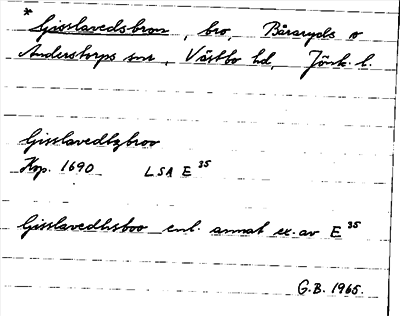 * Gisslavedsbron, bro, Båraryds o
Anderstorps snr, Västbo hd, Jönk. l.
Gisslavedhzbroo
Kop. 1690 LSA E 35
Gisslavedhsboo enl. annat ex. av E 35
G.B. 1965.